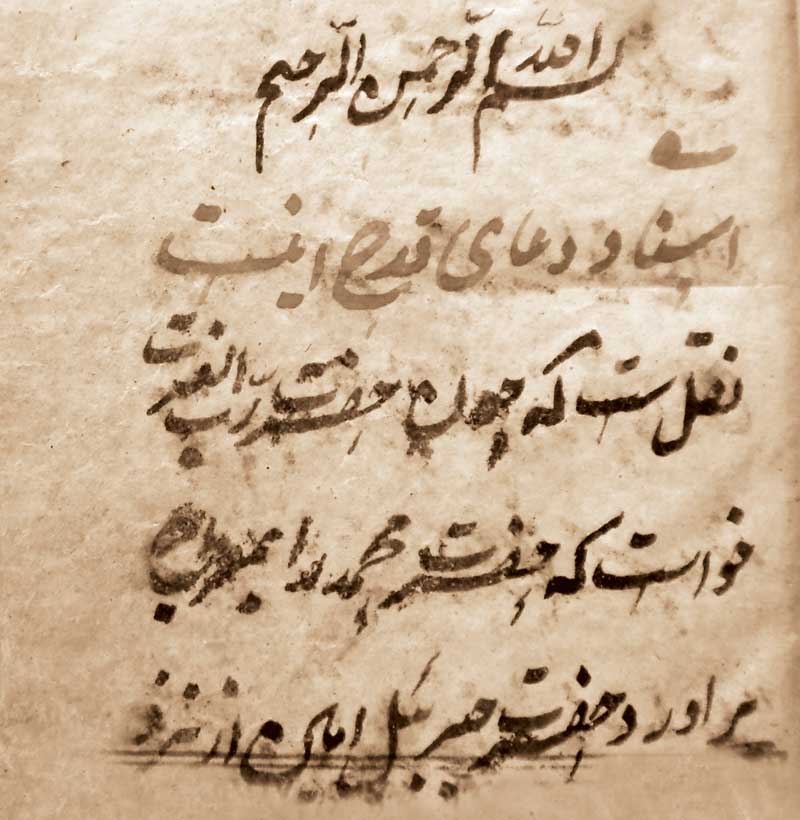 بسم الله الرحمن الرحیم
اسناد دعای قدح اینست
نقلست که چون حضرت رب العزت
خواست که حضرت محمد را بمعراج
برآورد حضرت جبرئیل امین از نزد